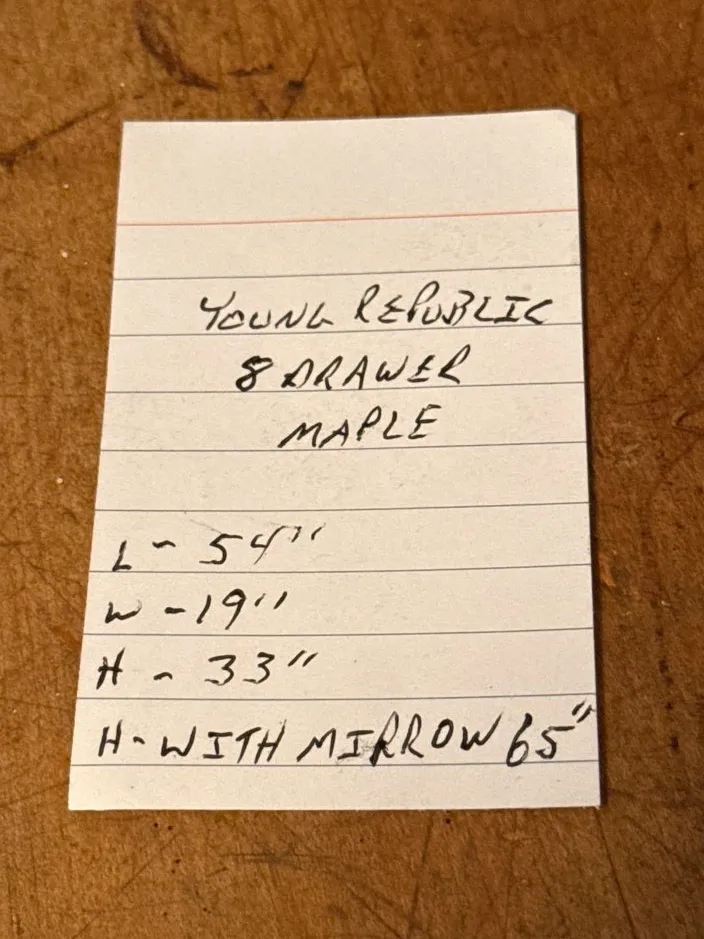 YOUNG REPUBLIC
8 DRAWER
MAPLE
L - 54"
W - 19"
H - 33"
H - WITH MIRROW 65"